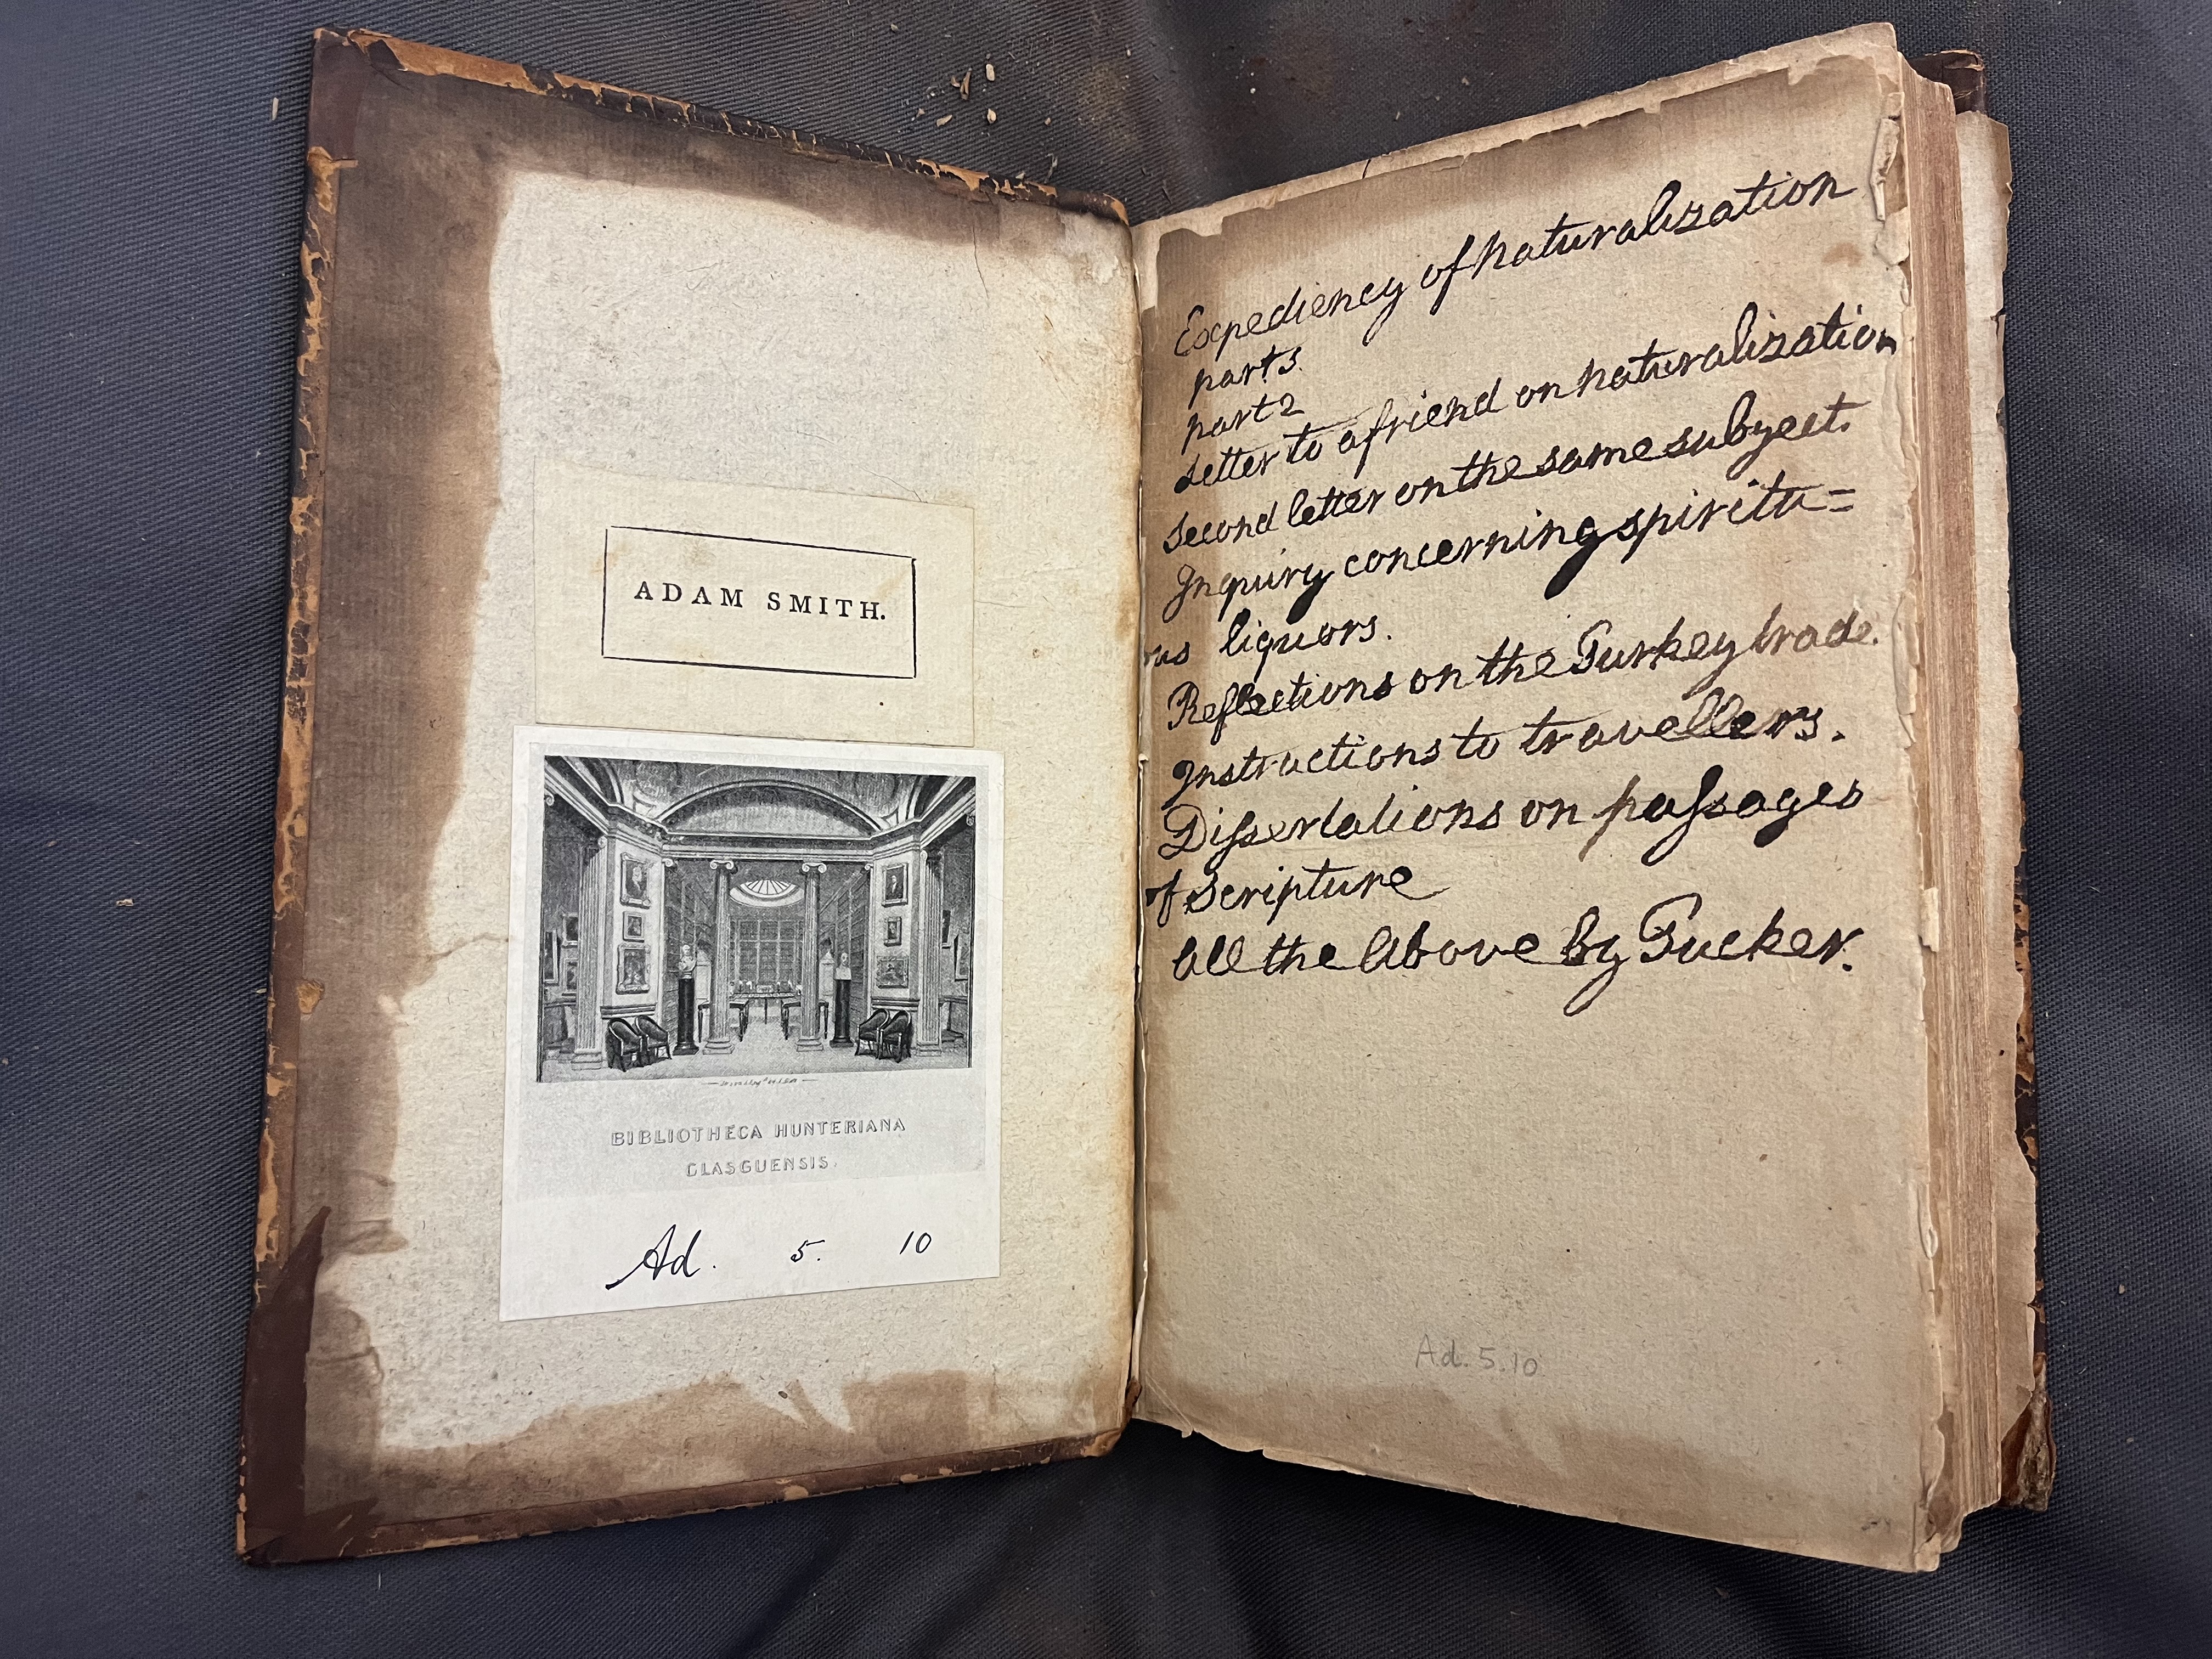 ADAM SMITH.
BIBLIOTHECA HUNTERIANA
GLASGUENSIS.
Ad. 5. 10
Expediency of naturalization
part 3.
part 2
Letter to a friend on naturalization
Second letter on the same subject.
Inquiry concerning spiritu=
ous liquors.
Reflections on the Turkey trade.
Instructions to travellers.
Dissertations on passages
of Scripture
all the above by Tucker.
Ad. 5.10